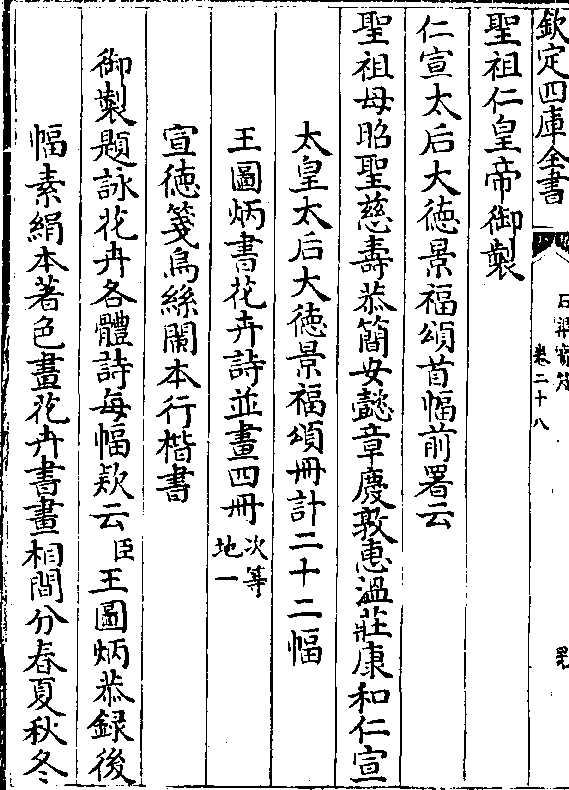 欽定四庫全書
卷二十八
聖祖仁皇帝御製
仁宣太后大徳景福頌首幅前署云
聖祖母昭聖慈壽恭簡安懿章慶敦惠溫莊康和仁宣
太皇太后大徳景福頌冊計二十二幅
王圖炳書花卉詩並畫四冊 次等
地一
宣徳箋烏絲闌本行楷書
御製題詠花卉各體詩每幅欵云 臣 王圖炳恭録後
幅素絹本著色畫花卉書畫相間分春夏秋冬